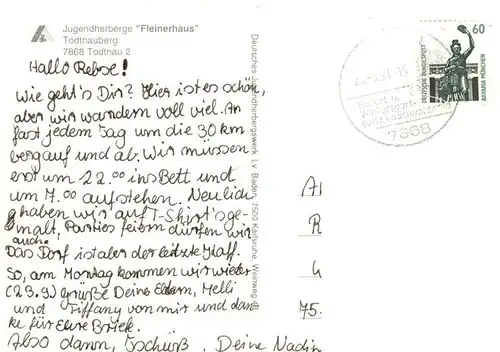 Jugendherberge "Fleinerhaus"
Todtnauberg
7868 Todtnau 2
Hallo Rebse!
Wie geht's Dir? Hier ist es schön,
aber wir wandern voll viel. An
fast jedem Tag um die 30 km
bergauf und ab. Wir müssen
erst um 22.00 ins Bett und
um 7.00 aufstehen. Neulich
haben wir auf T-Shirt's ge-
malt, Parties feiern dürfen wir
auch.
Das Dorf ist aber der letzte Kaff.
So, am Montag kommen wir wieder
(23.9.) grüße Deine Eltern, Melli
und Tiffany von mir und dan-
ke für Eure Briefe.
Also dann, Tschüß. Deine Nadin
Deutsches Jugendherbergswerk Lv. Baden, 7500 Karlsruhe, Weinweg
60
DEUTSCHE BUNDESPOST
BAVARIA MÜNCHEN
7868
Al
R
75.